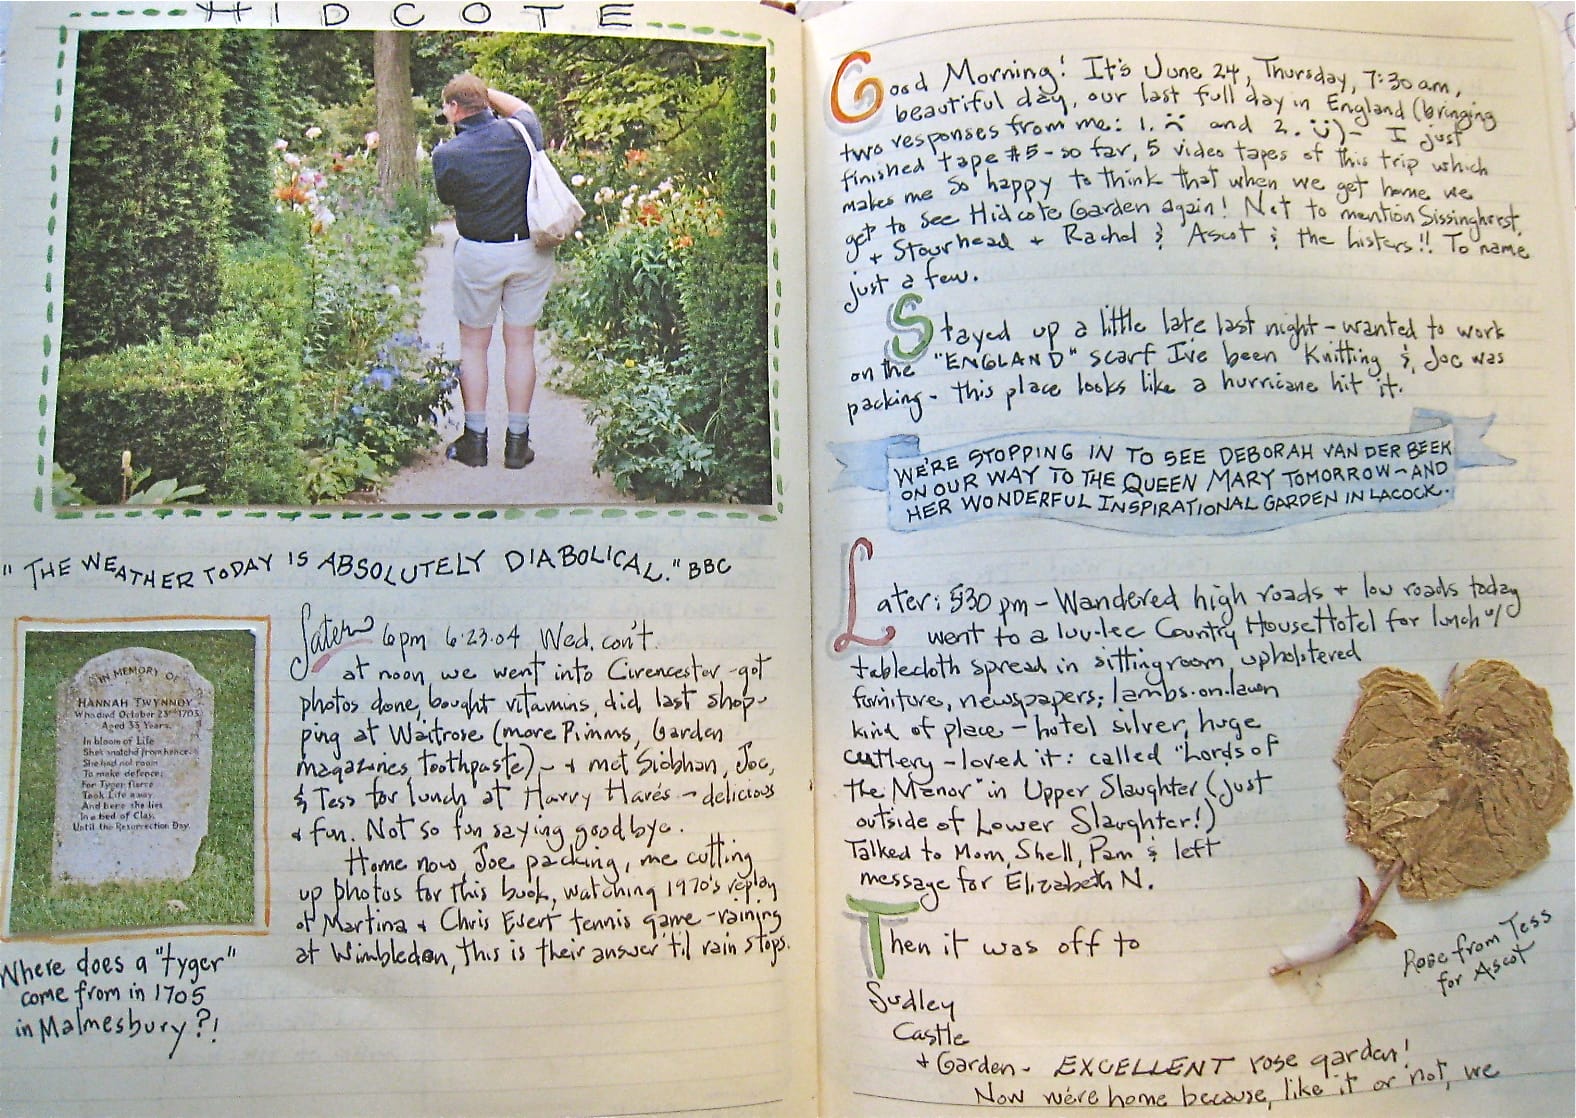 HIDCOTE
"THE WEATHER TODAY IS ABSOLUTELY DIABOLICAL." BBC
IN MEMORY OF
HANNAH TWYNNOY
Who died October 23rd 1703
Aged 33 Years.
In bloom of Life
She's snatchd from hence.
She had not room
To make defence;
For Tyger fierce
Took Life away
And here she lies
In a bed of Clay,
Until the Resurrection Day.
Where does a "tyger"
come from in 1705
in Malmesbury?!
Later 6pm 6.23.04 Wed. con't.
at noon we went into Cirencester - got
photos done, bought vitamins, did last shop-
ping at Waitrose (more Pimms, Garden
magazines, toothpaste) - + met Siobhan, Joe,
& Tess for lunch at Harry Hare's - delicious
+ fun. Not so fun saying goodbye.
Home now, Joe packing, me cutting
up photos for this book, watching 1970's replay
of Martina + Chris Evert tennis game - raining
at Wimbledon, this is their answer 'til rain stops.
Good Morning! It's June 24, Thursday, 7:30 am,
beautiful day, our last full day in England (bringing
two responses from me: 1. ☹ and 2. ☺) - I just
finished tape #5 - so far, 5 video tapes of this trip which
makes me so happy to think that when we get home we
get to see Hidcote Garden again! Not to mention Sissinghurst,
+ Stourhead + Rachel & Ascot & the Listers!! To name
just a few.
Stayed up a little late last night - wanted to work
on the "ENGLAND" scarf I've been Knitting &, Joe was
packing - this place looks like a hurricane hit it.
WE'RE STOPPING IN TO SEE DEBORAH VAN DER BEEK
ON OUR WAY TO THE QUEEN MARY TOMORROW - AND
HER WONDERFUL INSPIRATIONAL GARDEN IN LACOCK.
Later: 530 pm - Wandered high roads + low roads today
went to a luv-lee Country House Hotel for lunch w/
tablecloth spread in sitting room, upholstered
furniture, newspapers; lambs-on-lawn
kind of place - hotel silver, huge
cuttlery - loved it: called "Lords of
the Menor" in Upper Slaughter (just
outside of Lower Slaughter!)
Talked to Mom, Shell, Pam & left
message for Elizabeth N.
Then it was off to
Sudley
Castle
+ Garden - EXCELLENT rose garden!
Now we're home because, like it or not, we
Rose from Tess
for Ascot